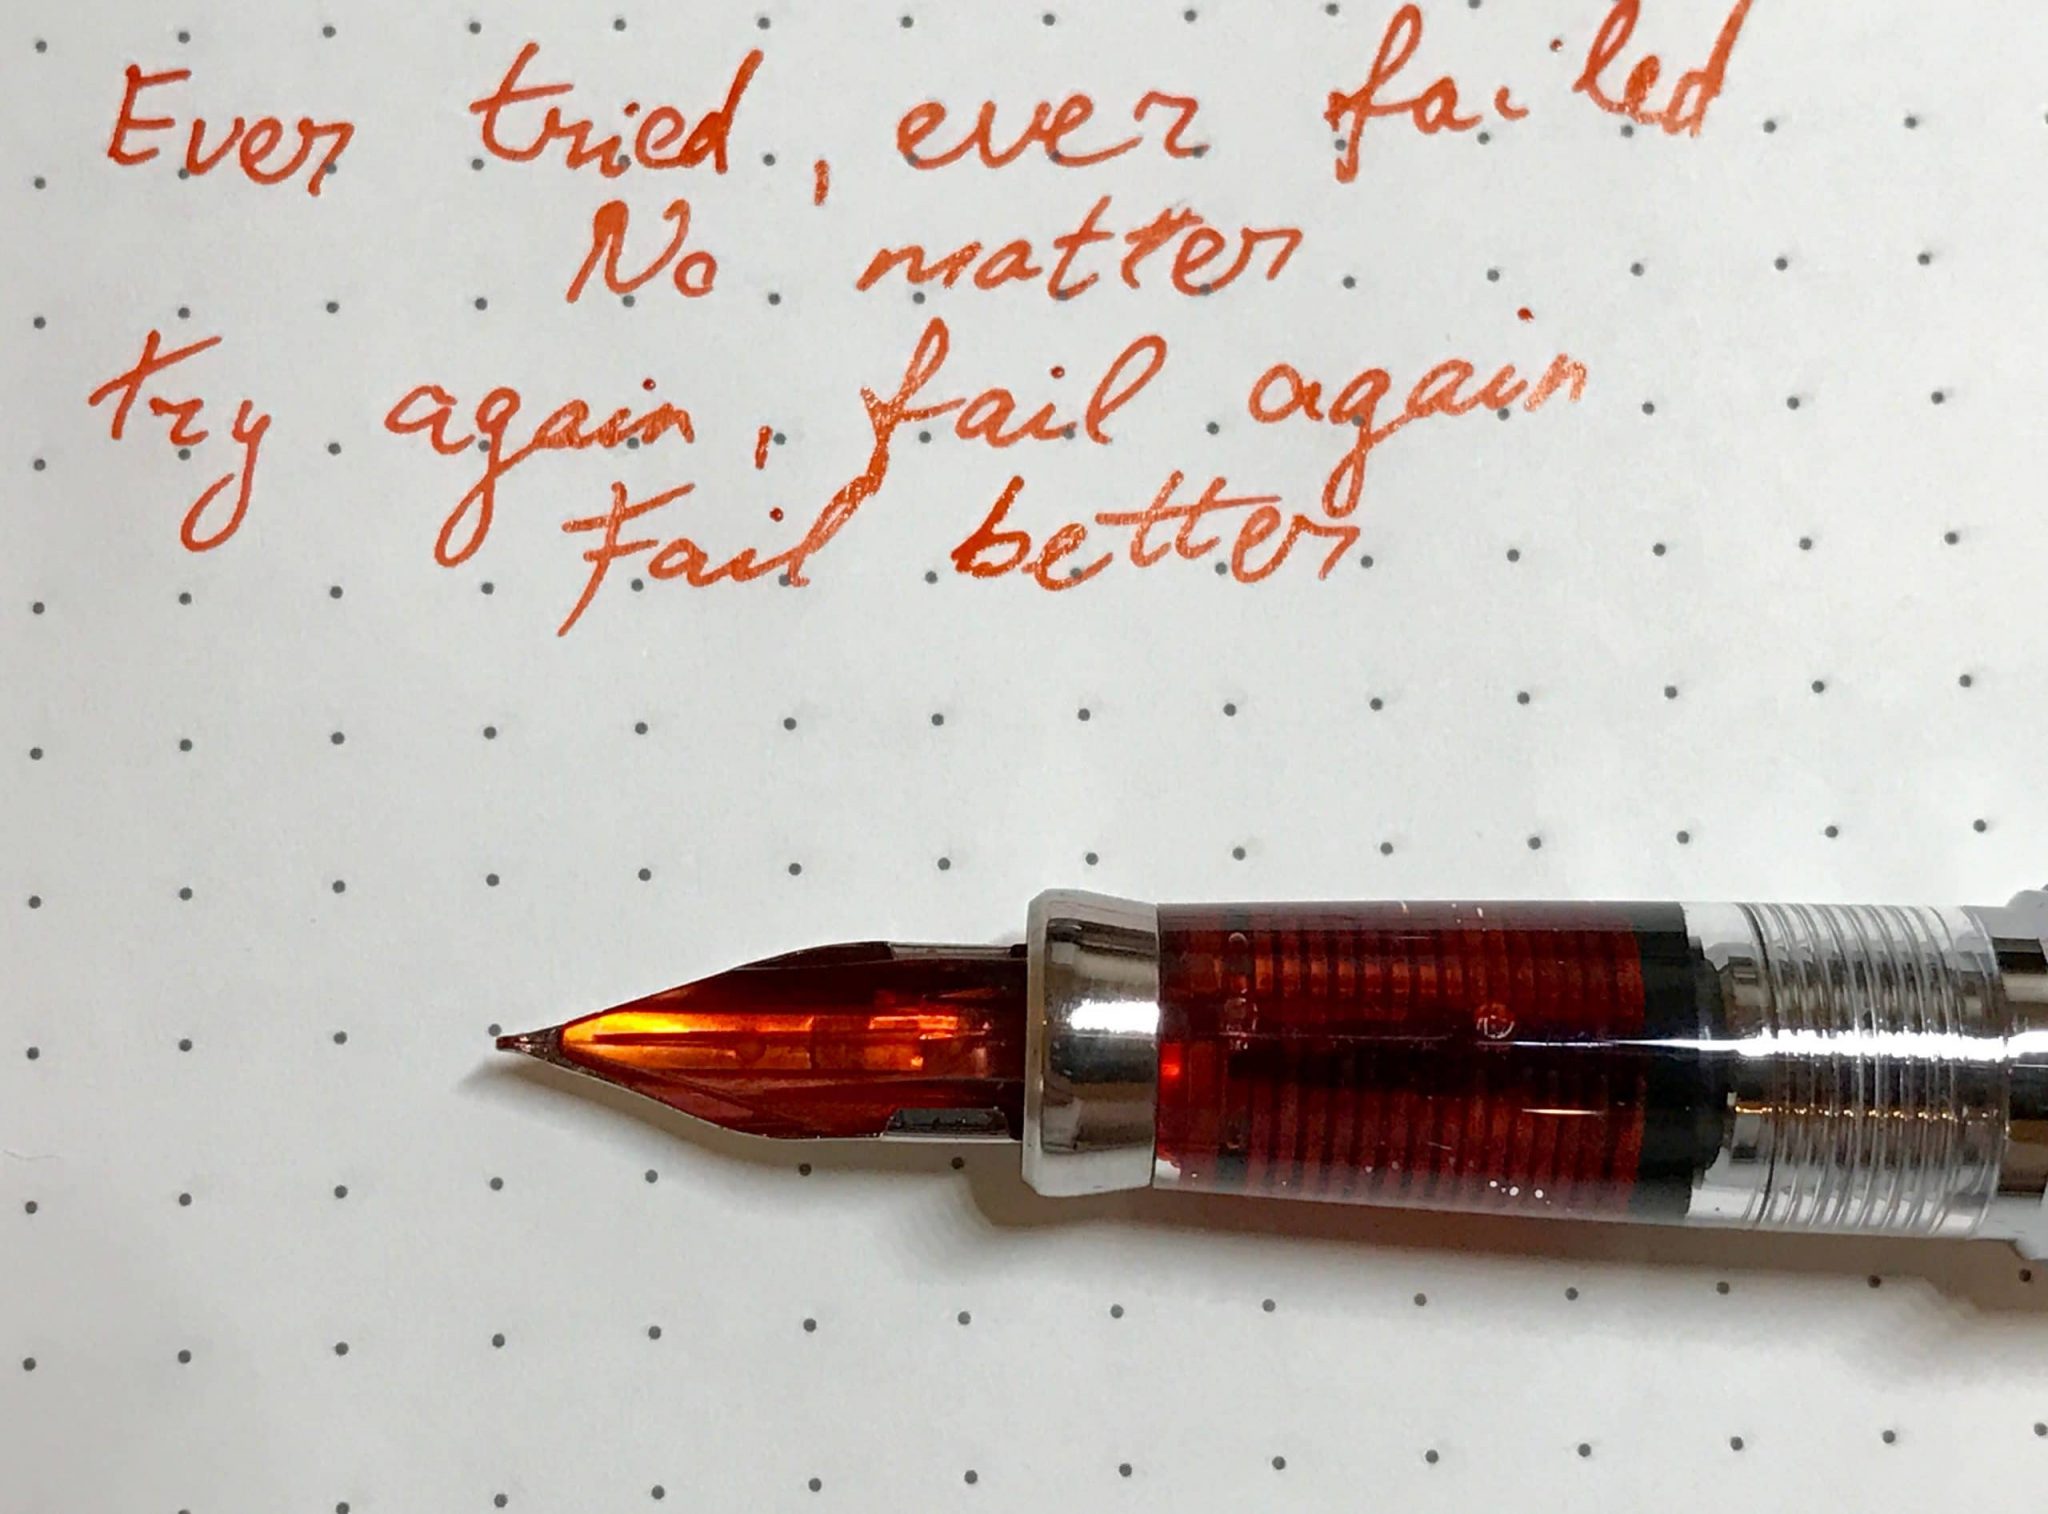 Ever tried, ever failed
No matter.
try again, fail again
Fail better.